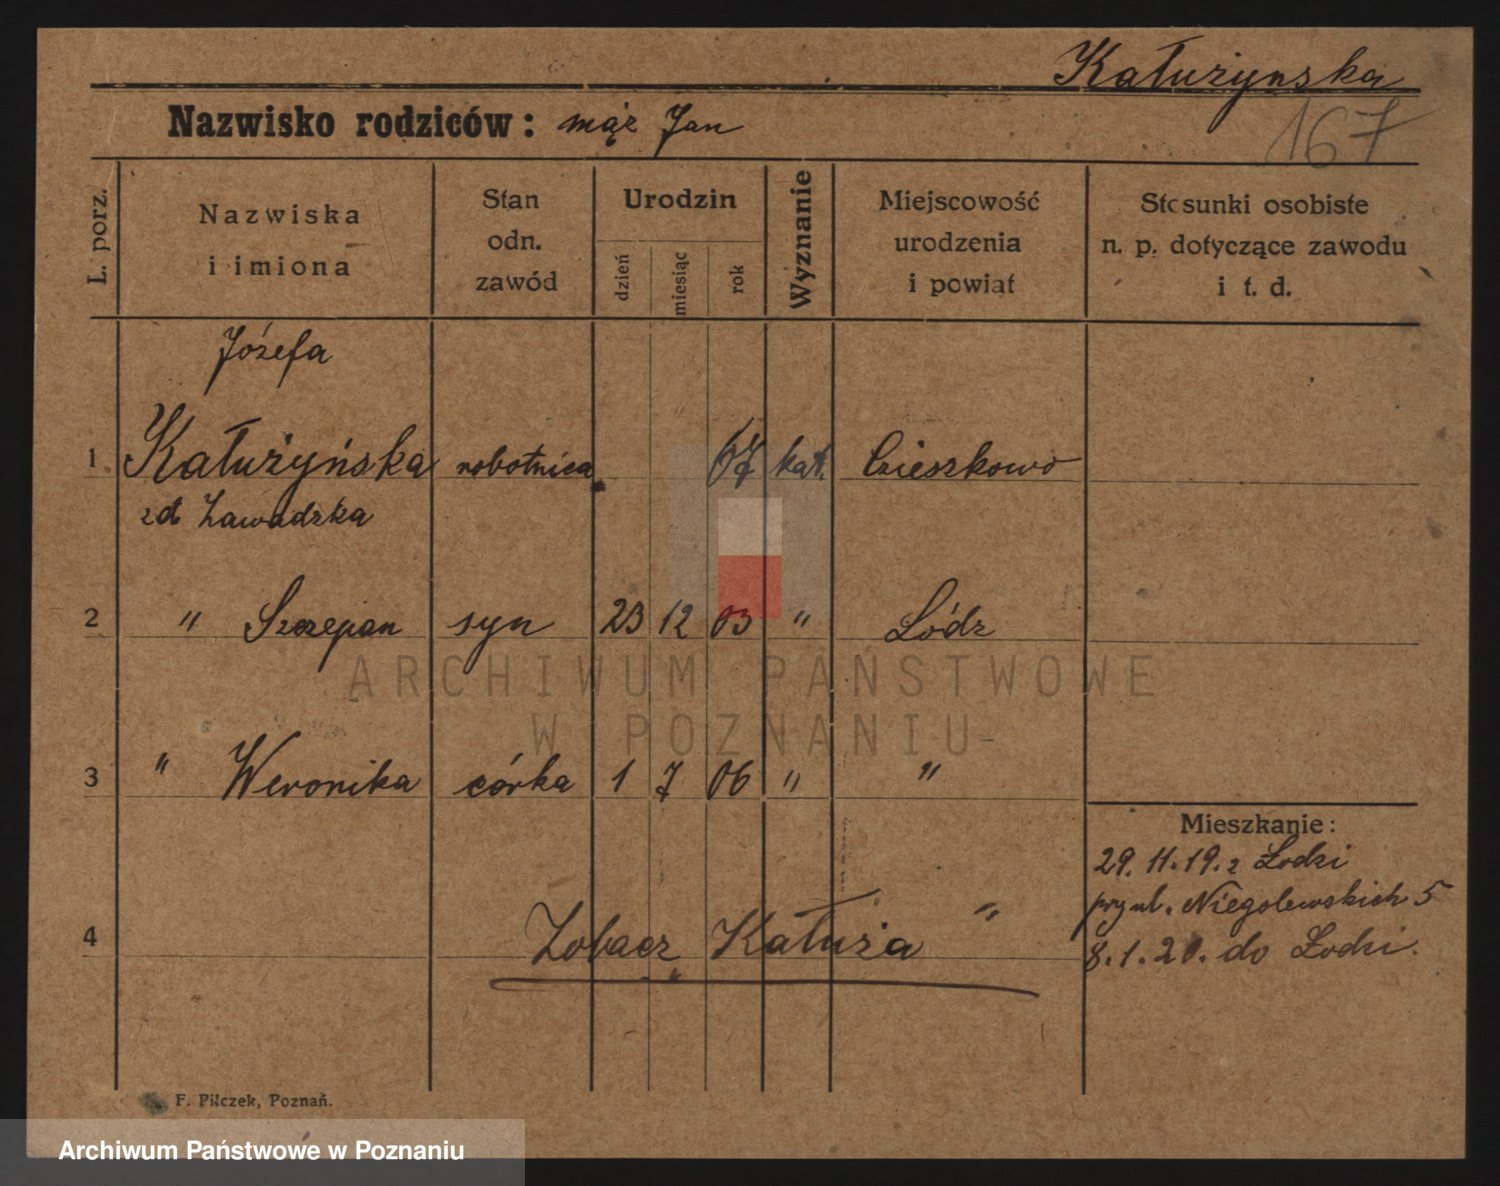 Kałużynska
167
Nazwisko rodziców: mąż Jan
L. porz.
Nazwiska i imiona
Stan odn. zawód
Urodzin
dzień
miesiąc
rok
Wyznanie
Miejscowość urodzenia i powiat
Stosunki osobiste n. p. dotyczące zawodu i t. d.
Józefa
1 Kałużyńska robotnica 67 kat. Cieszkowo
zd. Zawadzka
2 " Szczepan syn 23 12 03 " Łódz
3 " Weronika córka 1 7 06 " "
Mieszkanie:
29. 11. 19. z Łodzi
przy ul. Niegolewskich 5
8. 1. 20. do Łodzi.
4 Zobacz Kałuża "
F. Pilczek, Poznań.
ARCHIWUM PAŃSTWOWE
W POZNANIU
Archiwum Państwowe w Poznaniu